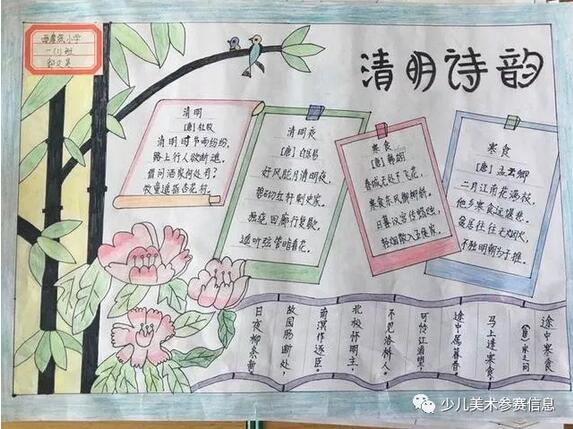 小学
一(1)班
清明诗韵
清明
[唐]杜牧
清明时节雨纷纷,
路上行人欲断魂。
借问酒家何处有?
牧童遥指杏花村。
清明夜
[唐]白居易
好风胧月清明夜,
碧砌红轩刺史家。
独绕回廊行复歇,
遥听弦管暗看花。
寒食
[唐]韩翃
春城无处不飞花,
寒食东风御柳斜。
日暮汉宫传蜡烛,
轻烟散入五侯家。
寒食
[唐]孟云卿
二月江南花满枝,
他乡寒食远堪悲。
贫居往往无烟火,
不独明朝为子推。
途中寒食
(唐)宋之问
马上逢寒食,
途中属暮春。
可怜江浦望,
不见洛桥人。
北极怀明主,
南溟作逐臣。
故园肠断处,
日夜柳条新
少儿美术参赛信息